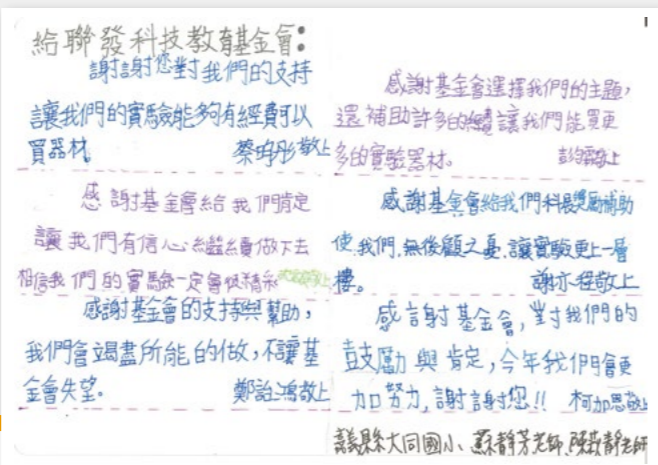 給聯發科技教育基金會：
謝謝您對我們的支持
讓我們的實驗能夠有經費可以
買器材。 蔡昀彤敬上
感謝基金會給我們肯定
讓我們有信心繼續做下去
相信我們的實驗一定會很精彩
感謝基金會的支持與幫助，
我們會竭盡所能的做，不讓基
金會失望。 鄭詒鴻敬上
感謝基金會選擇我們的主題，
還補助許多的經費讓我們能買更
多的實驗器材。 敬上
感謝基金會給我們科展獎勵補助
使我們無後顧之憂，讓實驗更上一層
樓。 謝亦程敬上
感謝基金會，對我們的
鼓勵與肯定，今年我們會更
加努力，謝謝您!! 柯加恩敬上
義縣大同國小、蘇靜芳老師、陳 靜老師